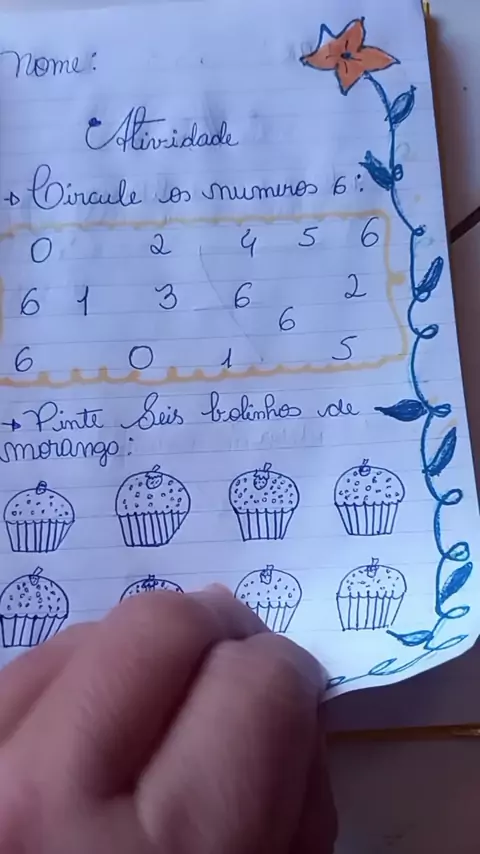 Nome:
Atividade
→ Circule os numeros 6:
0 2 4 5 6
6 1 3 6 2
6
6 0 1 5
→ Pinte Seis bolinhos de
morango: